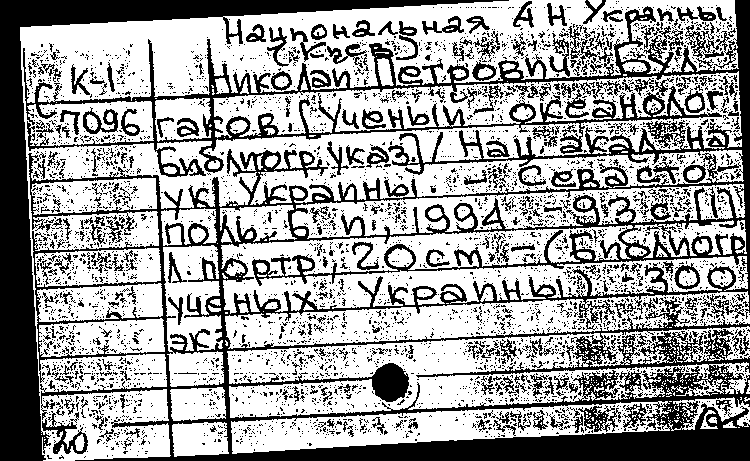 Национальная АН Украины
(Киев)
С К-1 Николай Петрович Бул-
7096 гаков: [Ученый - океанолог
Библиогр. указ.] / Нац. акад. на-
ук Украины. - Севасто-
поль: Б. и., 1994. - 93 с., [1]
л. портр.; 20 см. - (Библиогр
ученых Украины). - 300
экз.
20